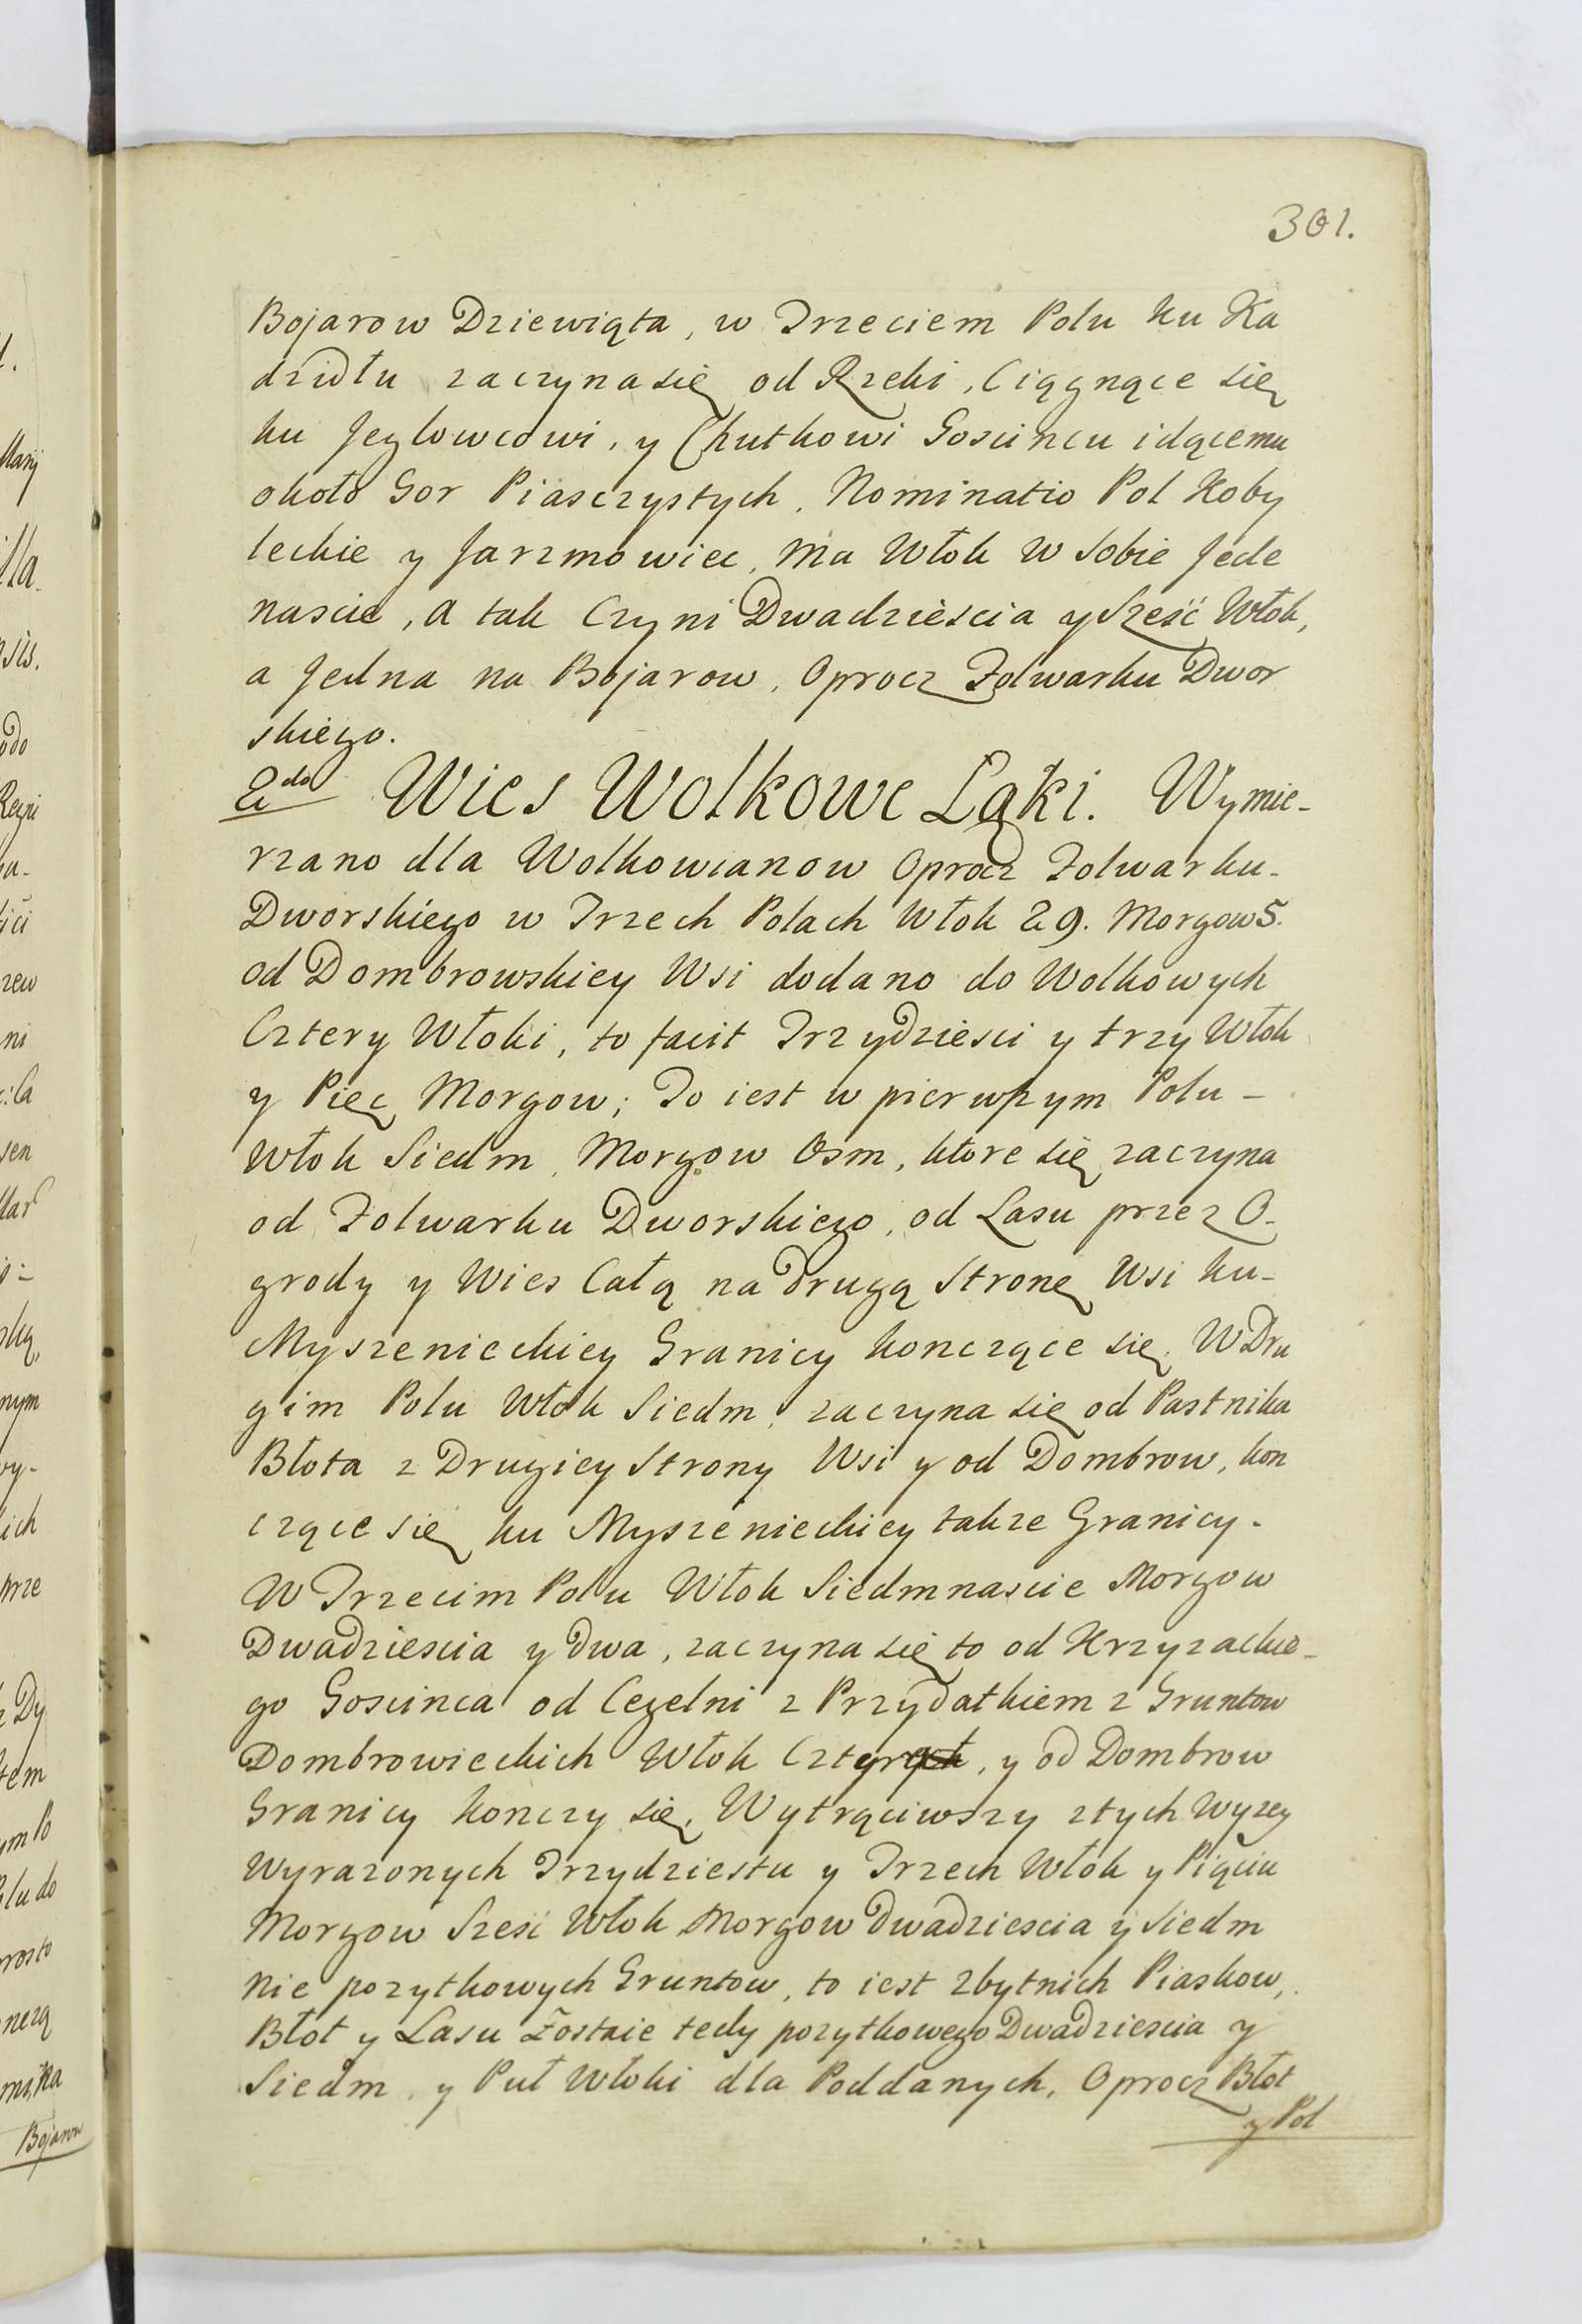 301.
Bojarow Dziewiąta, w Trzeciem Polu ku Ka
dzidłu zaczyna się od Rzeki, Ciągnące się
ku Jegłowcowi, y Chutkowi Goscincu idącemu
około Gor Piasczystych. Nominatio Pol Koby
leckie y Jarzmowiec, Ma Włok w Sobie Jede
nascie, a tak Czyni Dwadziescia y Sześć Włok,
a Jedna na Bojarow, Oprocz Folwarku Dwor
skiego.
2do Wies Wolkowe Łąki. Wymie-
rzano dla Wolkowianow Oprocz Folwarku-
Dworskiego w Trzech Polach Włok 29. Morgow 5.
od Dombrowskiey Wsi dodano do Wolkowych
Cztery Włoki, to facit Trzydziesci y trzy Włok
y Pięc Morgow; To iest w pierwszym Polu -
Włok Siedm, Morgow Osm, ktore się zaczyna
od Folwarku Dworskiego, od Lasu przez O-
grody y Wies Całą na Drugą Stronę Wsi ku-
Myszenieckiey Granicy konczące się. W Dru
gim Polu Włok Siedm, zaczyna się od Pastnika
Błota z Drugiey Strony Wsi y od Dombrow, kon
czące się ku Myszenieckiey takze Granicy.
W Trzecim Polu Włok Siedmnascie Morgow
Dwadziescia y Dwa, zaczyna się to od Krzyzackie-
go Goscinca od Cegelni z Przydatkiem z Gruntow
Dombrowieckich Włok Czterych, y od Dombrow
Granicy konczy się. Wytrąciwszy z tych Wyzey
Wyrazonych Trzydziestu y Trzech Włok y Piąciu
Morgow Sześć Włok Morgow Dwadziescia y Siedm
Nie pozytkowych Gruntow, to iest Zbytnich Piaskow,
Błot y Lasu Zostaie tedy pozytkowego Dwadziescia y
Siedm y Puł Włoki dla Poddanych, Oprocz Błot
y Pol
Bojarow